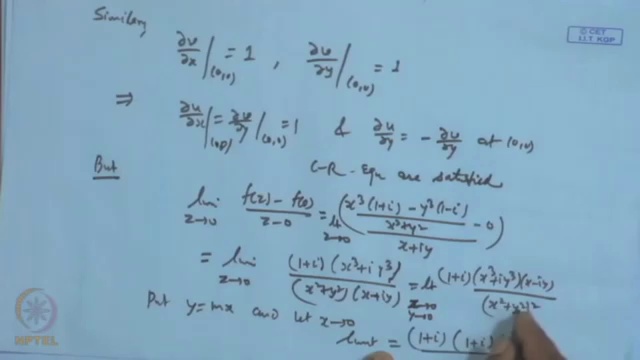 Similarly
© CET
I.I.T. KGP
∂v/∂x |(0,0) = 1 , ∂v/∂y |(0,0) = 1
⇒ ∂u/∂x |(0,0) = ∂v/∂y |(0,0) = 1 & ∂u/∂y = - ∂v/∂y at (0,0)
C-R- Equ are satisfied
But
lim z→0 f(z) - f(0) / z-0 = lt z→0 ( x³(1+i) - y³(1-i) / x²+y² - 0 / x+iy )
= lim z→0 (1+i) (x³+iy³) / (x²+y²) (x+iy) = lt x→0 y→0 (1+i) (x³+iy³)(x-iy) / (x²+y²)²
Put y=mx and let x→0
limit = (1+i) (1+i
NPTEL